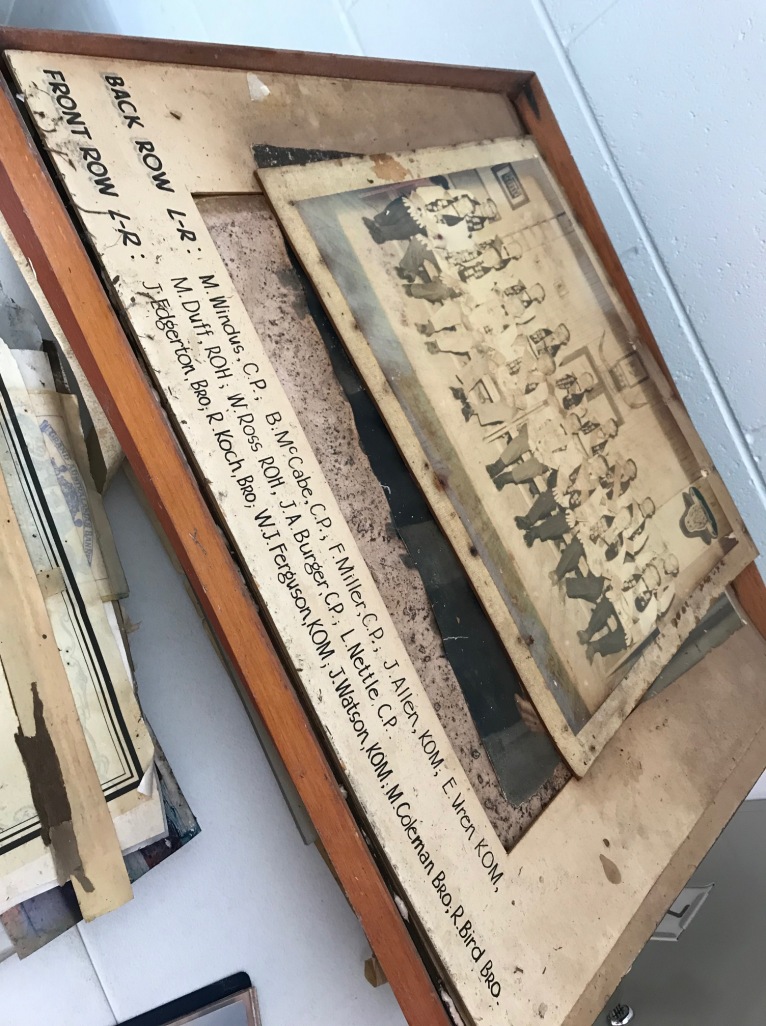 BACK ROW L-R: M. Windus, C.P.; B. McCabe, C.P.; F. Miller, C.P.; J. Allen, KOM; E. Vren KOM,
M. Duff, ROH; W. Ross ROH, J. A Burger, CP.; L. Nettle, C.P.
FRONT ROW L-R: J. Edgerton Bro; R. Koch, Bro; W.J. Ferguson, KOM; J. Watson, KOM; M. Coleman Bro; R. Bird Bro.